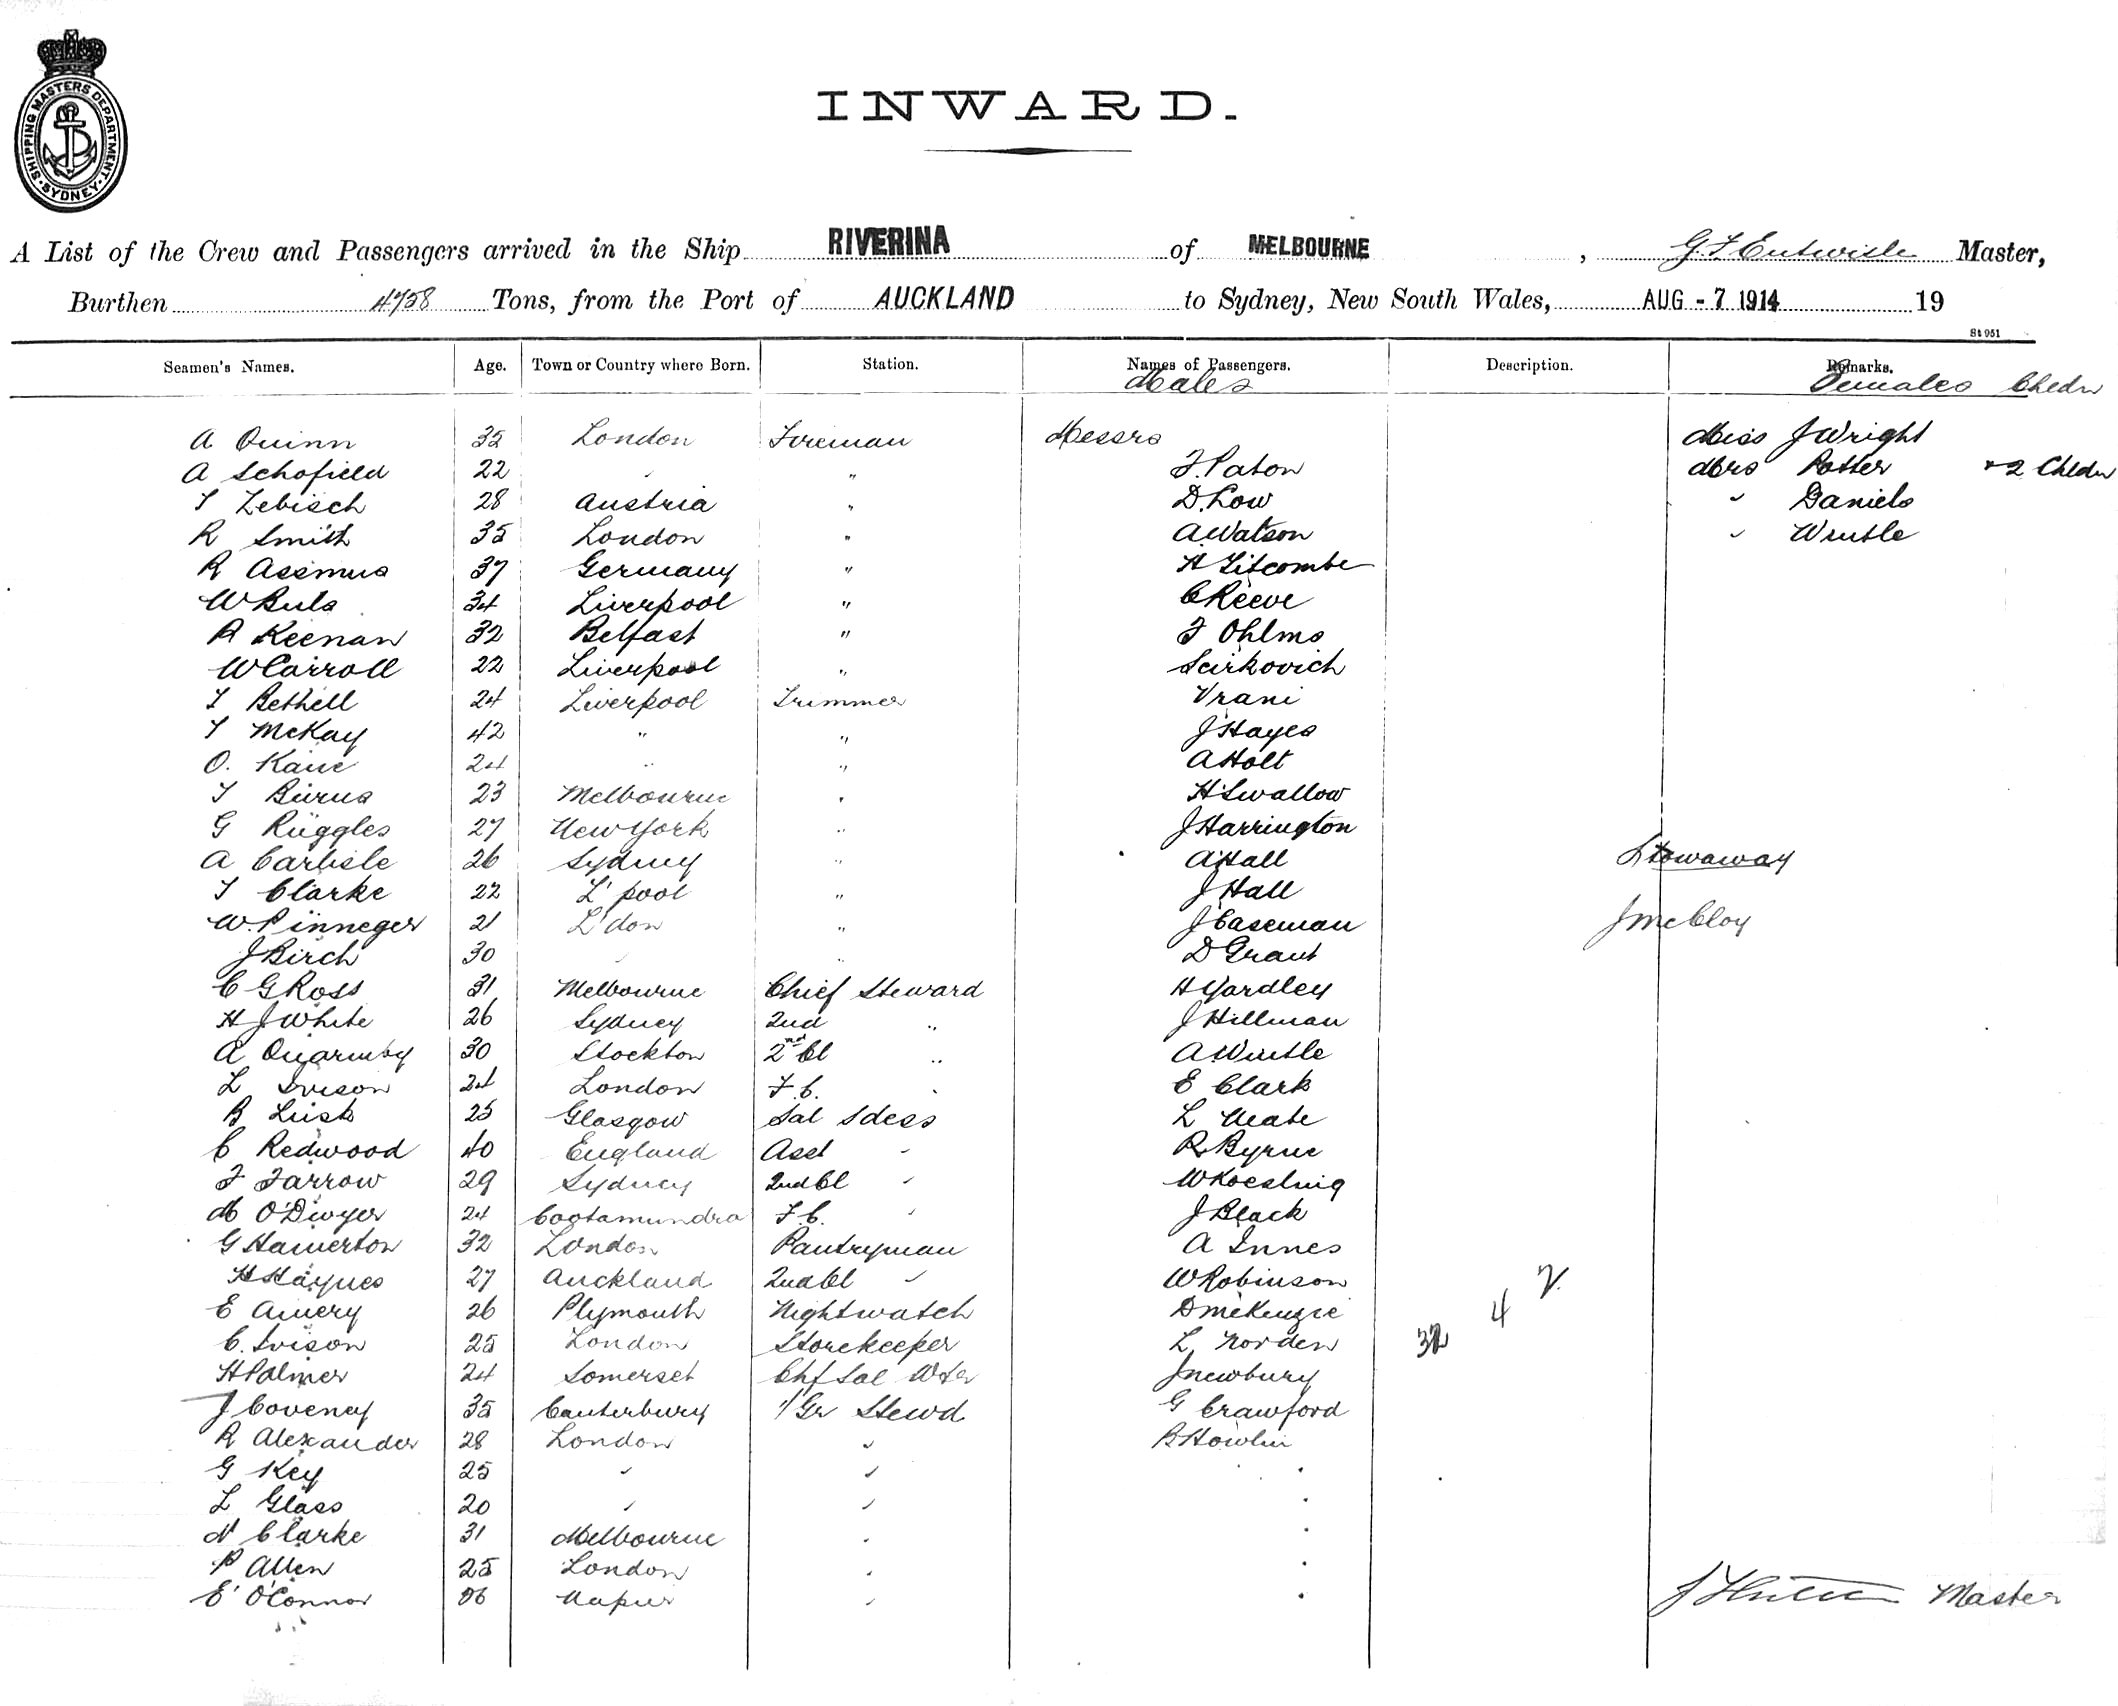 SHIPPING MASTERS DEPARTMENT · SYDNEY ·
INWARD.
A List of the Crew and Passengers arrived in the Ship RIVERINA of MELBOURNE, G. F Entwisle Master,
Burthen 4758 Tons, from the Port of AUCKLAND to Sydney, New South Wales, AUG - 7 1914 19
St 951
Seamen's Names. Age. Town or Country where Born. Station. Names of Passengers. Description. Remarks.
Males Females Chedn
A Quinn 35 London Fireman Messrs Miss J Wright
A Schofield 22 " " F. Paton Mrs Potter + 2 Chedn
T Zebisch 28 Austria " D. Low " Daniels
R Smith 35 London " A Watson " Wintle
R Assmus 37 Germany " H Titcombe
W Buls 34 Liverpool " C Reeve
R Keenan 32 Belfast " F Ohlms
W Carroll 22 Liverpool " Scirkovich
T Bethell 24 Liverpool Trimmer Vrani
T McKay 42 " " J Hayes
O. Kane 24 " " A Holt
T Burns 23 Melbourne " H Swallow
G Ruggles 27 New York " J Harrington
A Carlisle 26 Sydney " A Hall Stowaway
T Clarke 22 L'pool " J Hall
W. Pinneger 21 L'don " J Caseman J McCloy
J Birch 30 " " D Grant
C G Ross 31 Melbourne Chief Steward H Yardley
H J White 26 Sydney 2nd " J Hillman
A Quarmby 30 Stockton 2nd Cl " A Wintle
L Ivison 24 London F. C. " E Clark
B Lusk 25 Glasgow Sal Sdess L Neate
C Redwood 40 England Asst " R Byrne
F Farrow 29 Sydney 2nd Cl " W Koeslnig
M O'Dwyer 24 Cootamundra F. C. " J Black
G Hamerton 32 London Pantryman A Innes
H Haynes 27 Auckland 2nd Cl " W Robinson 2
E Amery 26 Plymouth Nightwatch D McKenzie 4
C. Ivison 25 London Storekeeper L Norden 32
H Palmer 24 Somerset Chf Sal Wter J Newbury
J Coveney 35 Canterbury 1/Gr Stewd G Crawford
R Alexander 28 London " B Howlin
G Key 25 " "
L Glass 20 " "
N Clarke 31 Melbourne "
P Allen 25 London "
E O'Connor 26 Napier " Master